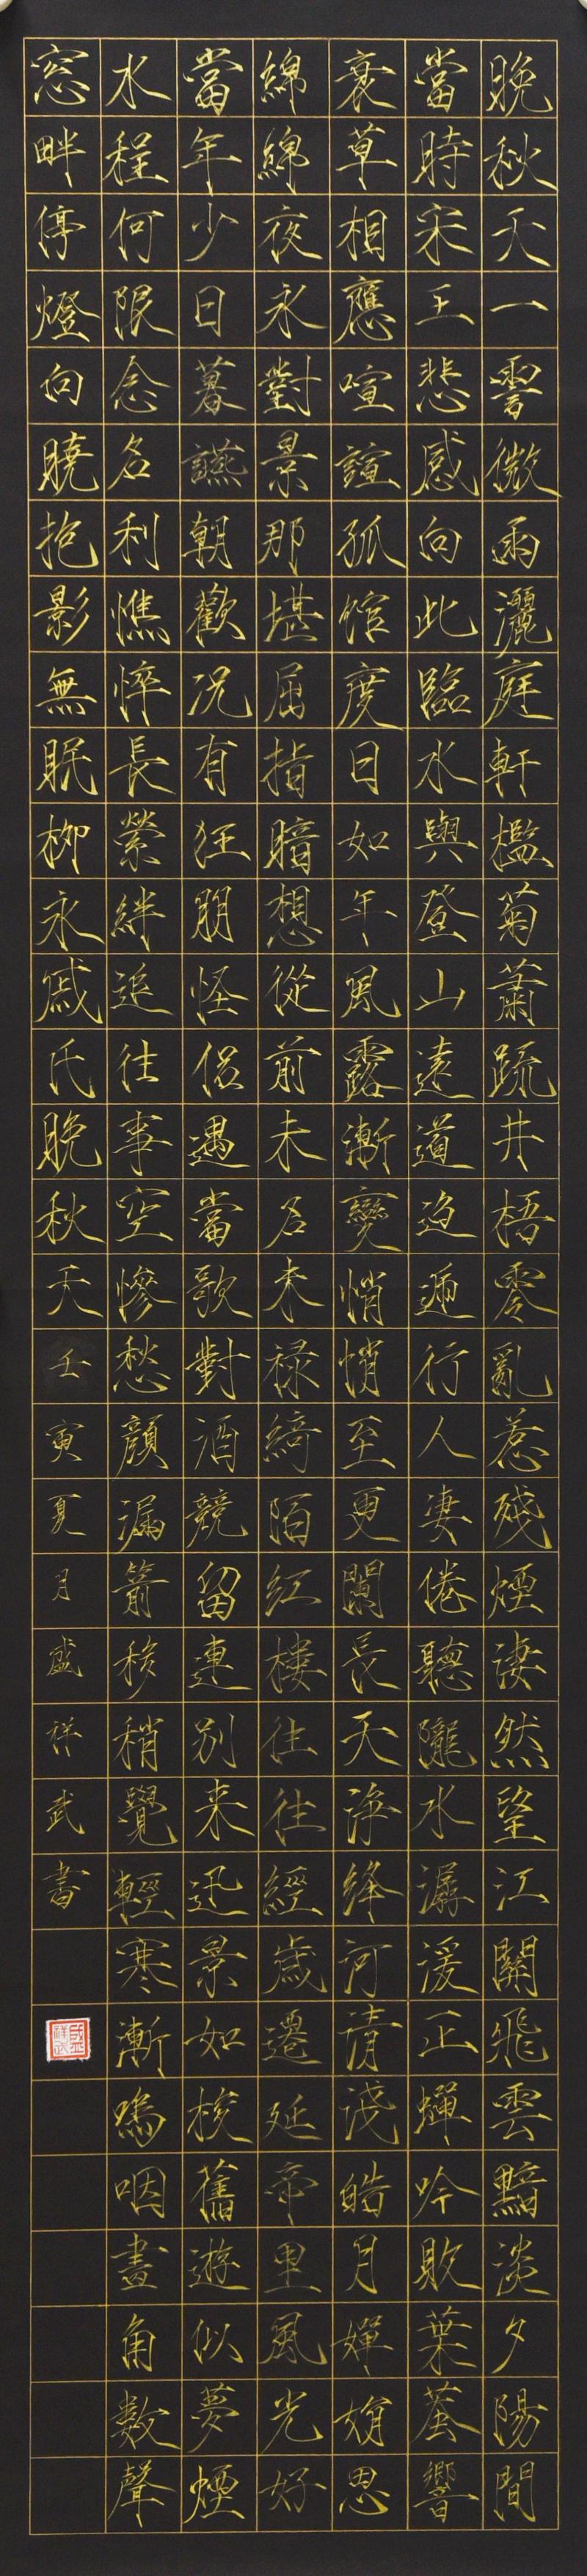 晚秋天一霎微雨灑庭軒檻菊蕭疏井梧零亂惹殘煙淒然望江關飛雲黯淡夕陽間
當時宋王悲感向此臨水與登山遠道迢遞行人淒倦聽隴水潺湲正蟬吟敗葉蛩響
衰草相應喧諠孤館度日如年風露漸變悄悄至更闌長天淨絳河清淺皓月嬋娟思
綿綿夜永對景那堪屈指暗想從前未名未祿綺陌紅樓往往經歲遷延帝里風光好
當年少日暮讌朝歡况有狂朋怪侶遇當歌對酒競留連別来迅景如梭舊遊似夢煙
水程何限念名利憔悴長縈絆追往事空慘愁顏漏箭移稍覺輕寒漸嗚咽畫角數聲
窓畔停燈向曉抱影無眠柳永戚氏晚秋天壬寅夏月盛祥武書
盛祥武